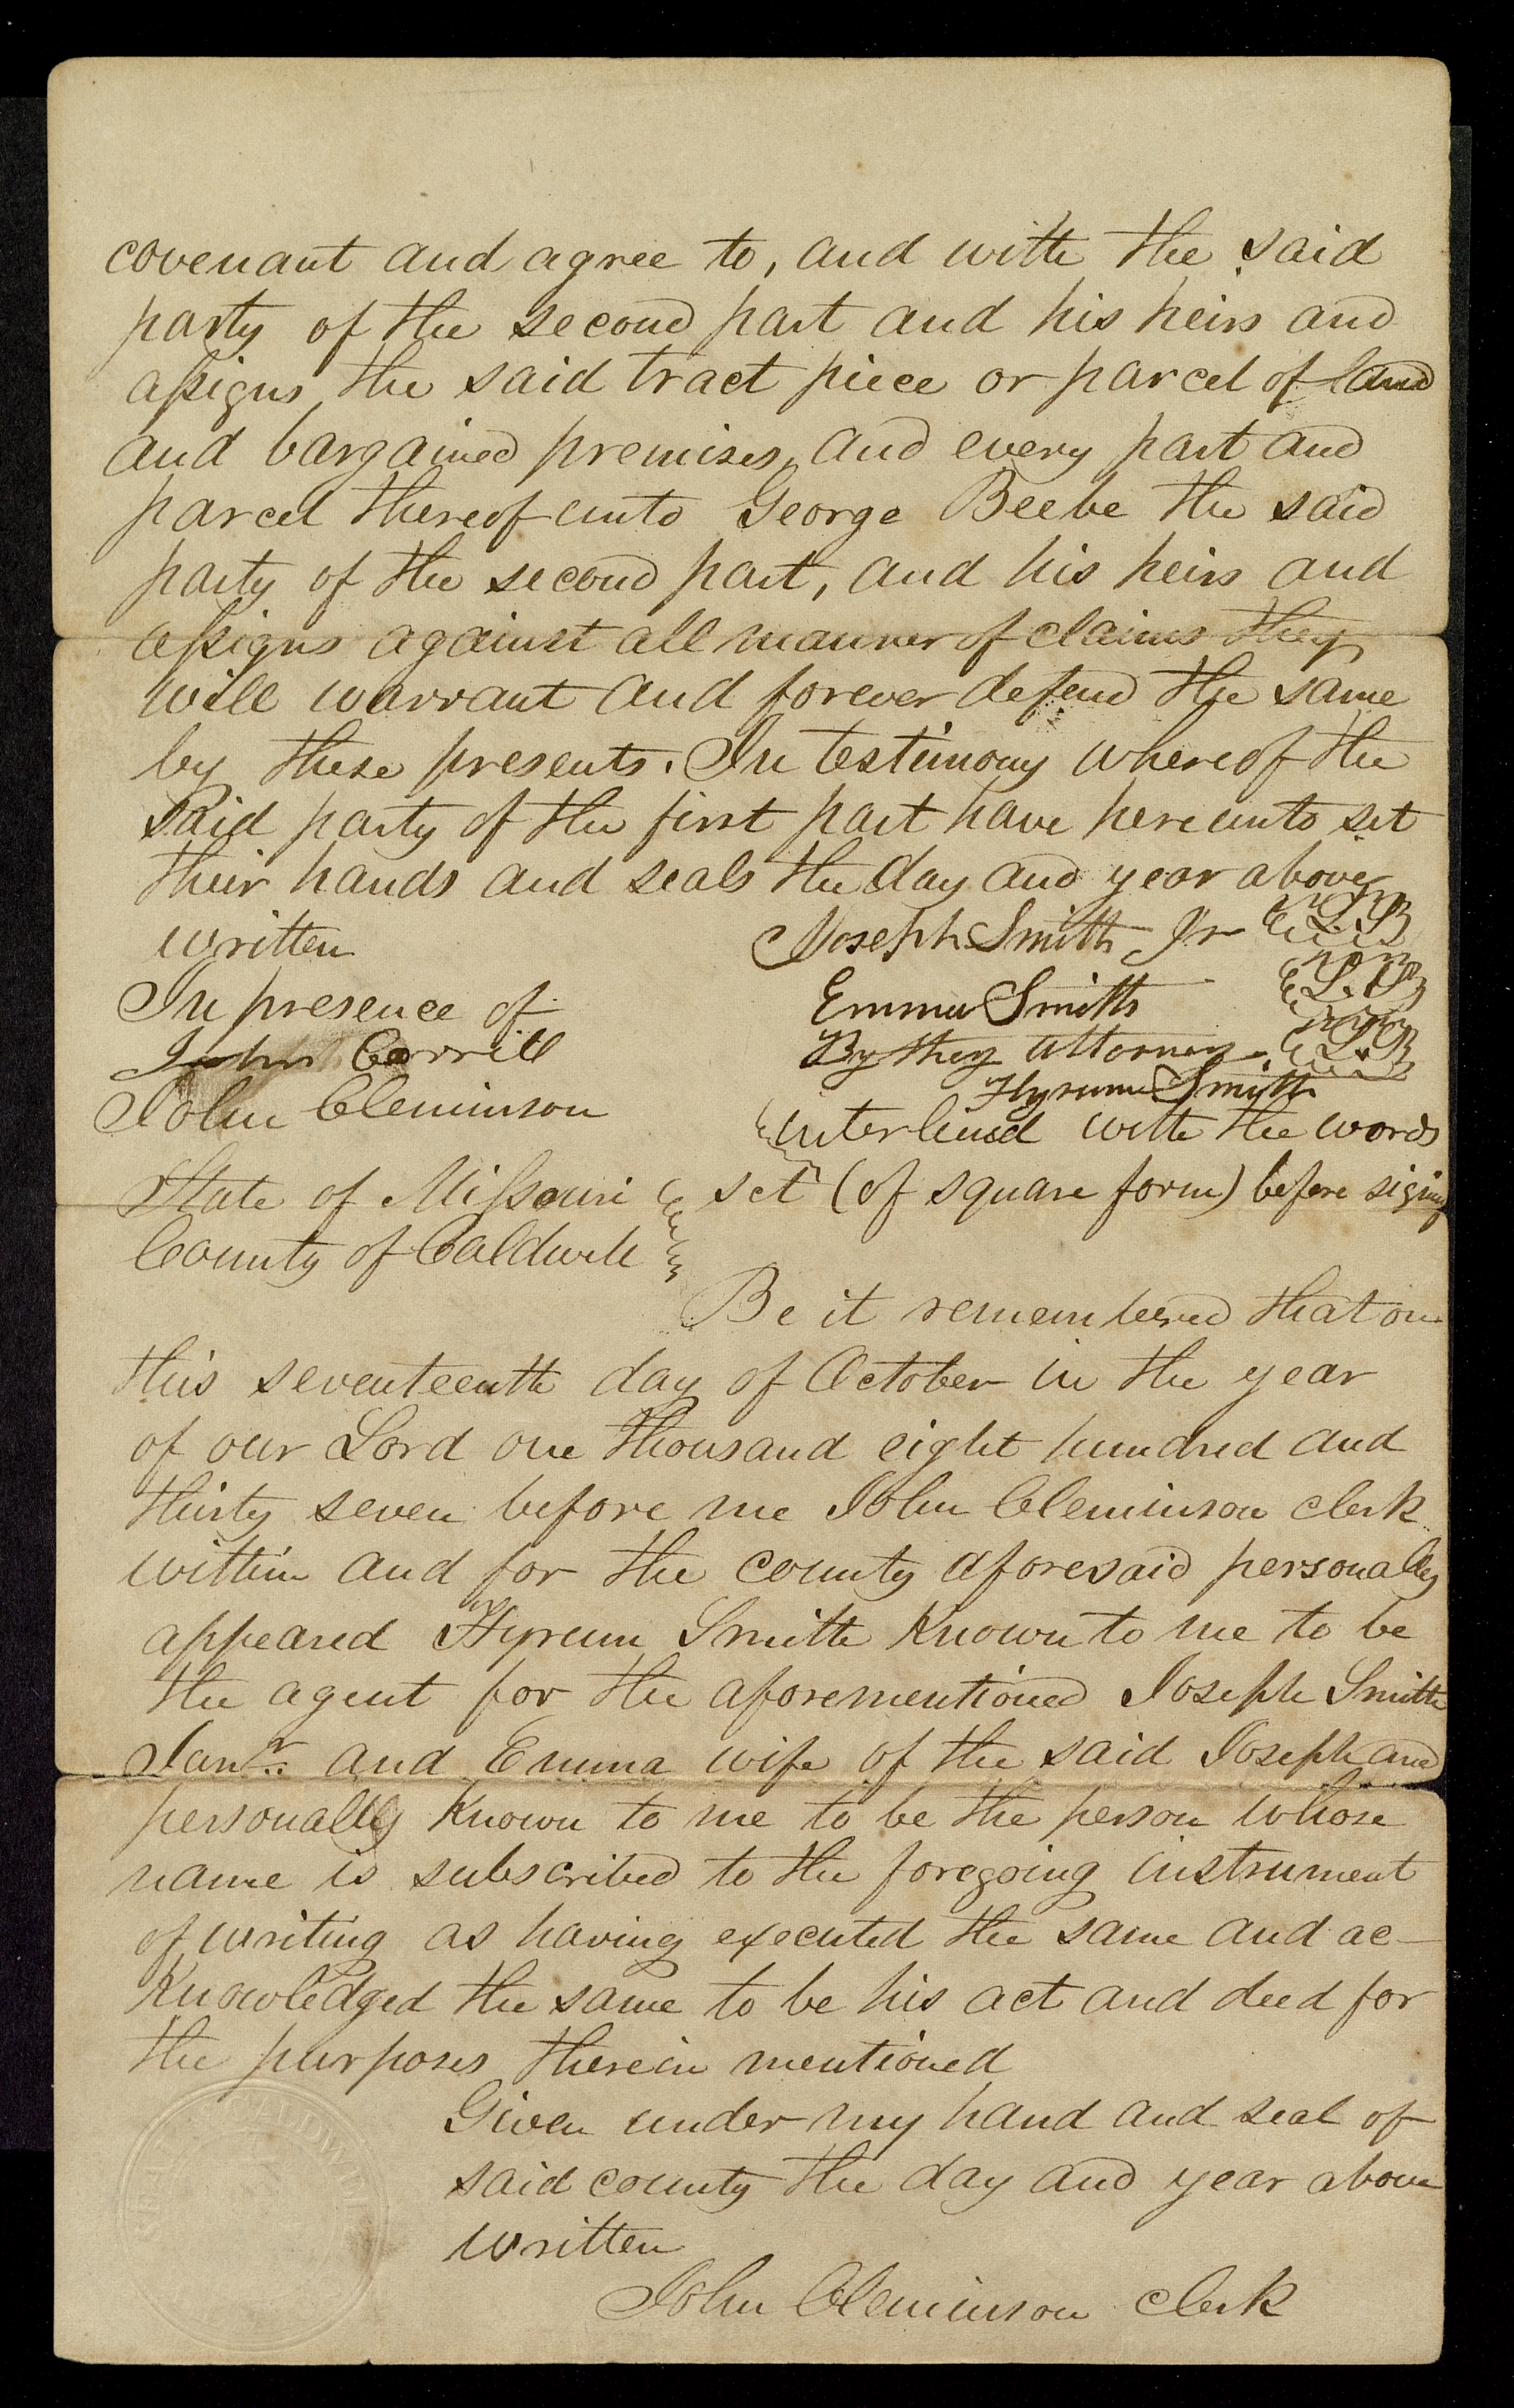 covenant and agree to, and with the said
party of the second part and his heirs and
assigns, the said tract piece or parcel of land
and bargained premises, and every part and
parcel thereof unto George Beebe the said
party of the second part, and his heirs and
assigns against all manner of claims they
will warrant and forever defend the same
by these presents. In testimony whereof the
said party of the first part have hereunto set
their hands and seals the day and year above
written
Joseph Smith Jr L.S
Emma Smith L.S
By they attorney L.S
Hyrum Smith
In presence of
John Corrill
John Cleminson
interlined with the words
set (of square form) before signing
State of Missouri
County of Caldwell
Be it remembered that on
this seventeenth day of October in the year
of our Lord one thousand eight hundred and
thirty seven before me John Cleminson clerk
within and for the county aforesaid personally
appeared Hyrum Smith known to me to be
the agent for the aforementioned Joseph Smith
Junr. and Emma wife of the said Joseph and
personally known to me to be the person whose
name is subscribed to the foregoing instrument
of writing as having executed the same and ac-
knowledged the same to be his act and deed for
the purposes therein mentioned
Given under my hand and seal of
said county the day and year above
written
John Cleminson clerk